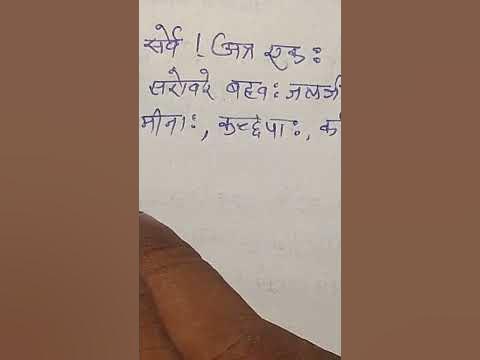 सर्वे ! अत्र एकः
सरोवरे बहवः जलज
मीनाः, कच्छपाः, क